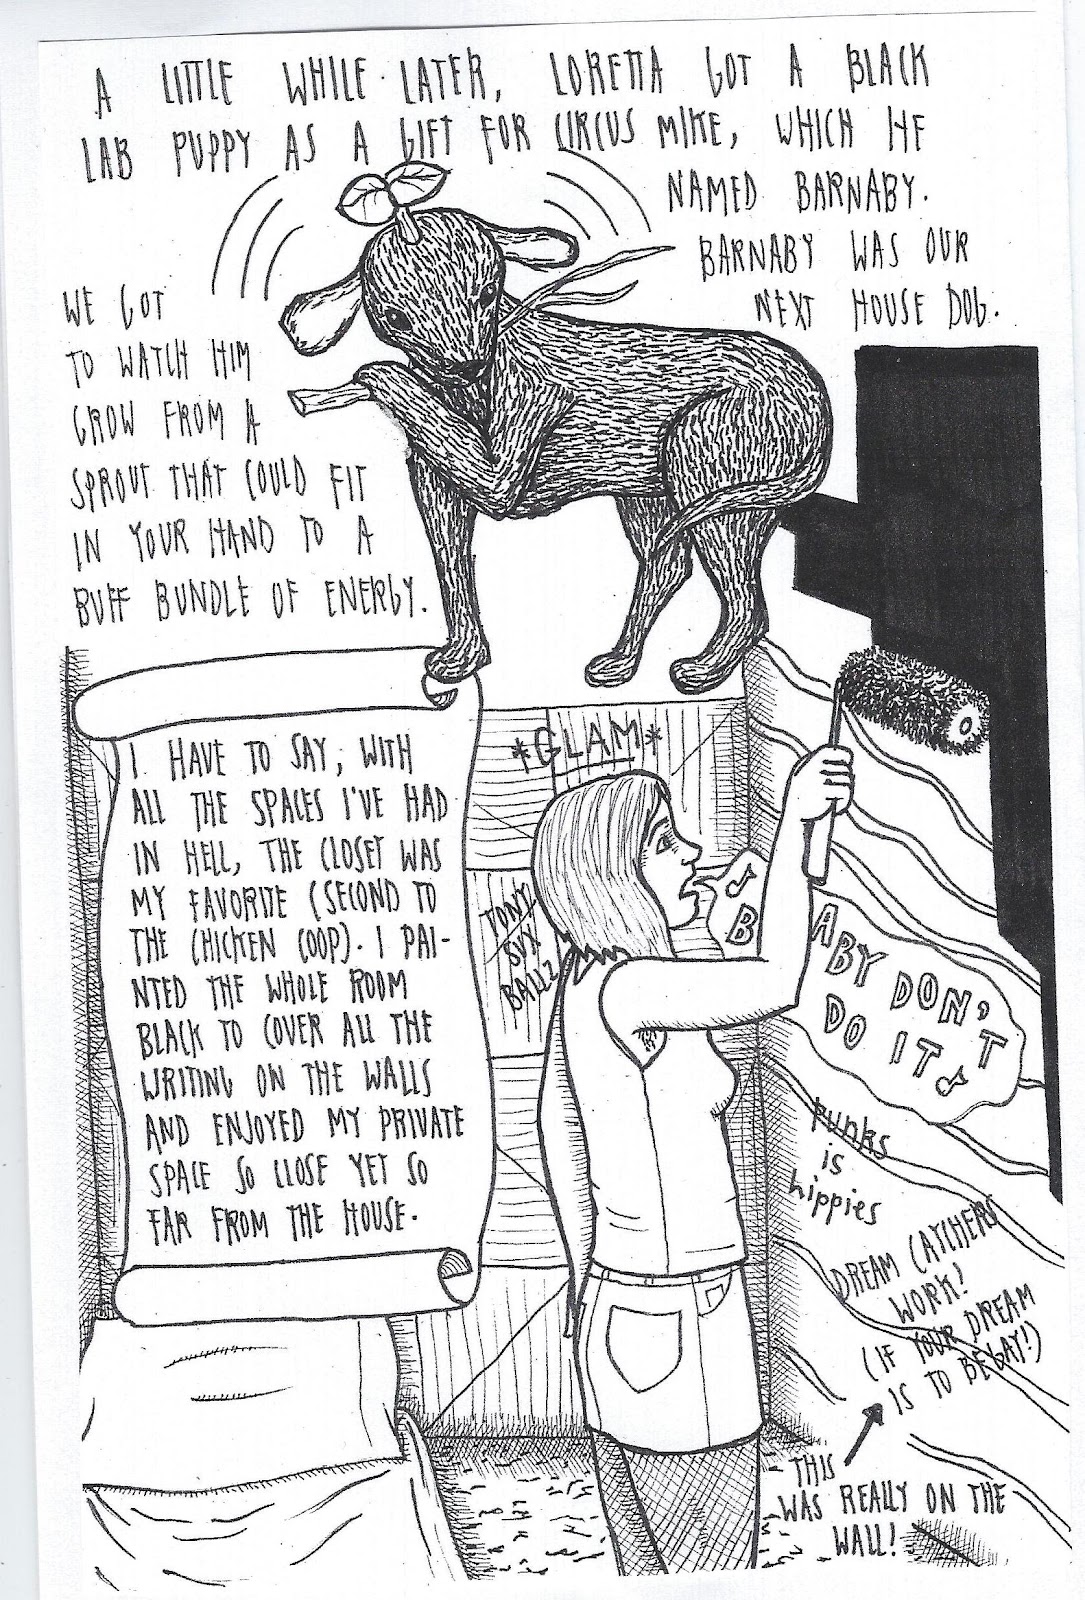 A LITTLE WHILE LATER, LORETTA GOT A BLACK
LAB PUPPY AS A GIFT FOR CIRCUS MIKE, WHICH HE
NAMED BARNABY.
BARNABY WAS OUR
NEXT HOUSE DOG.
WE GOT
TO WATCH HIM
GROW FROM A
SPROUT THAT COULD FIT
IN YOUR HAND TO A
BUFF BUNDLE OF ENERGY.
I HAVE TO SAY, WITH
ALL THE SPACES I'VE HAD
IN HELL, THE CLOSET WAS
MY FAVORITE (SECOND TO
THE CHICKEN COOP). I PAI-
NTED THE WHOLE ROOM
BLACK TO COVER ALL THE
WRITING ON THE WALLS
AND ENJOYED MY PRIVATE
SPACE SO CLOSE YET SO
FAR FROM THE HOUSE.
*GLAM*
TONY
SUX
BALLZ
BABY DON'T
DO IT
punks
is
hippies
DREAM CATCHERS
WORK!
(IF YOUR DREAM
IS TO BE GAY!)
THIS
WAS REALLY ON THE
WALL!